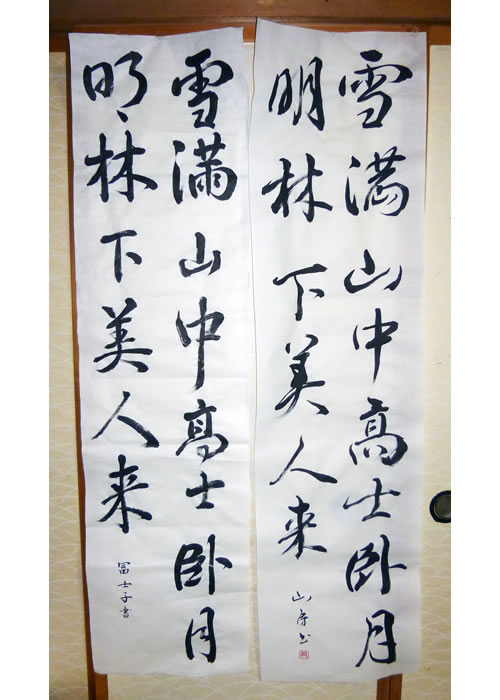 雪満山中高士臥月
明林下美人来
雪満山中高士臥月
明林下美人来
冨士子書